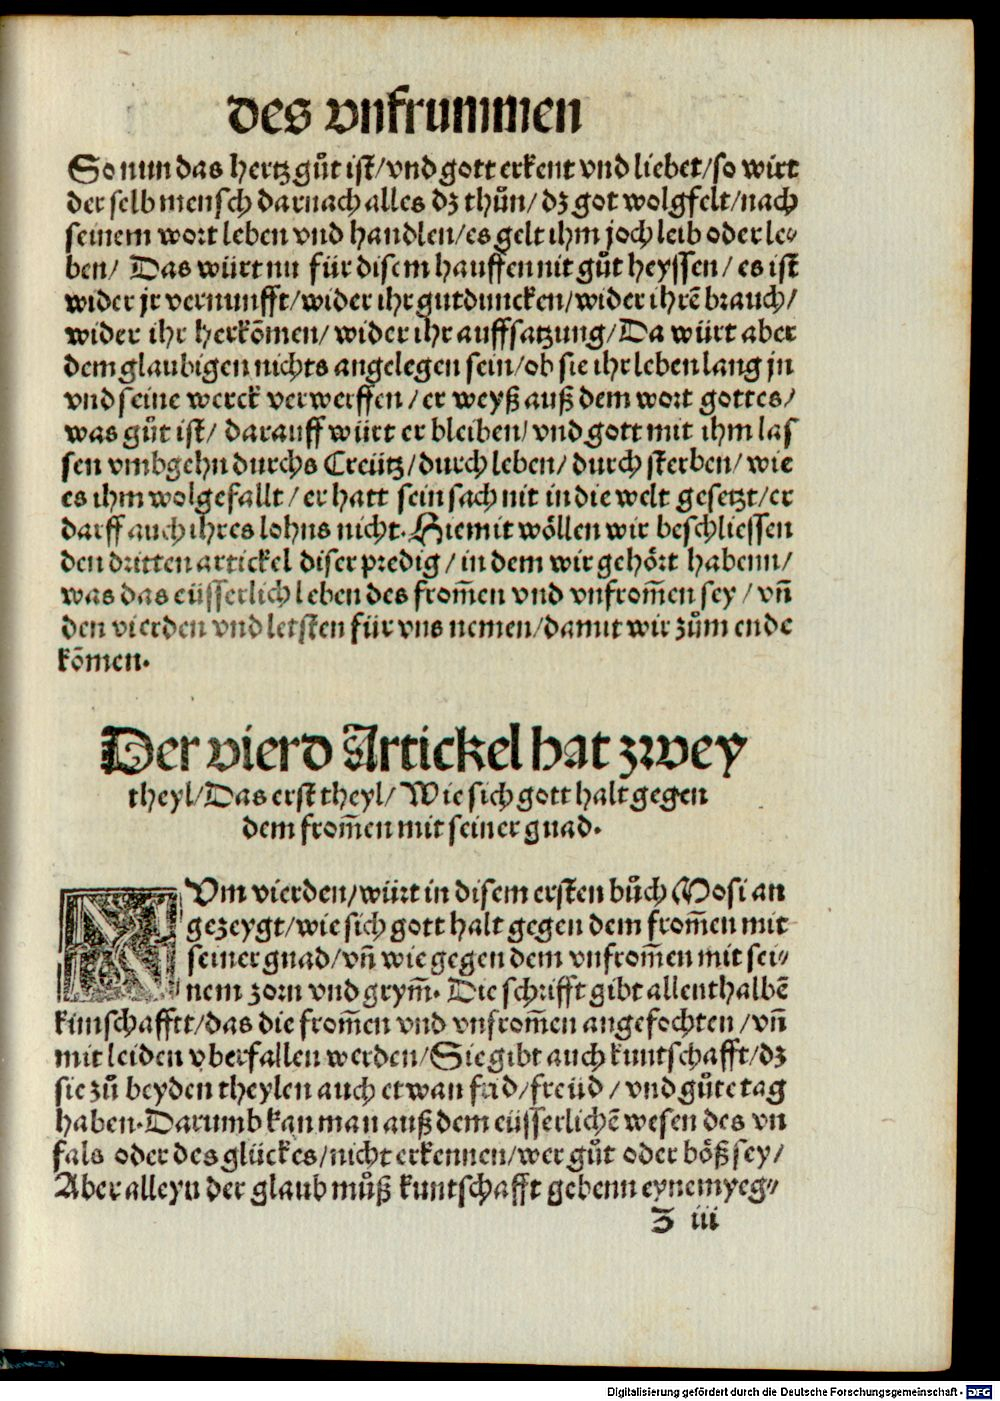 des vnfrummen
So nun das hertz gůt ist/vnd gott erkent vnd liebet/so wirt
der selb mensch darnach alles dz thůn/dz got wolgfelt/nach
seinem wort leben vnd handlen/es gelt ihm joch leib oder le⸗
ben/ Das würt nu für disem hauffen nit gůt heyssen/es ist
wider jr vernunfft/wider ihr gutduncken/wider ihrē brauch/
wider ihr herkōmen/wider ihr auffsatzung/Da würt aber
dem glaubigen nichts angelegen sein/ob sie ihr leben lang jn
vnd seine werck verwerffen/er weyß auß dem wort gottes/
was gůt ist/ darauff würt er bleiben/vnd gott mit ihm las
sen vmbgehn durchs Creütz/durch leben/durch sterben/wie
es ihm wolgefallt/er hatt sein sach nit in die welt gesetzt/er
darff auch ihres lohns nicht. Hiemit wöllen wir beschliessen
den dritten artickel diser predig/in dem wir gehört habenn/
was das eüsserlich leben des from̄en vnd vnfrom̄en sey/vn̄
den vierden vnd letsten für vns nemen/damit wir zům ende
kōmen.
Der vierd Artickel hat zwey
theyl/Das erst theyl/Wie sich gott halt gegen
dem from̄en mit seiner gnad.
ZVm vierden/würt in disem ersten bůch Mosi an
gezeygt/wie sich gott halt gegen dem from̄en mit
seiner gnad/vn̄ wie gegen dem vnfrom̄en mit sei⸗
nem zorn vnd grym̄. Die schrifft gibt allenthalbē
kuntschafftt/das die from̄en vnd vnfrom̄en angefochten/vn̄
mit leiden vberfallen werden/Sie gibt auch kuntschafft/dz
sie zů beyden theylen auch etwan frid/freüd/vnd gůte tag
haben. Darumb kan man auß dem eüsserlichē wesen des vn
fals oder des glückes/nicht erkennen/wer gůt oder böß sey/
Aber alleyn der glaub můß kuntschafft gebenn eynem yeg⸗
Z iii
Digitalisierung gefördert durch die Deutsche Forschungsgemeinschaft - DFG